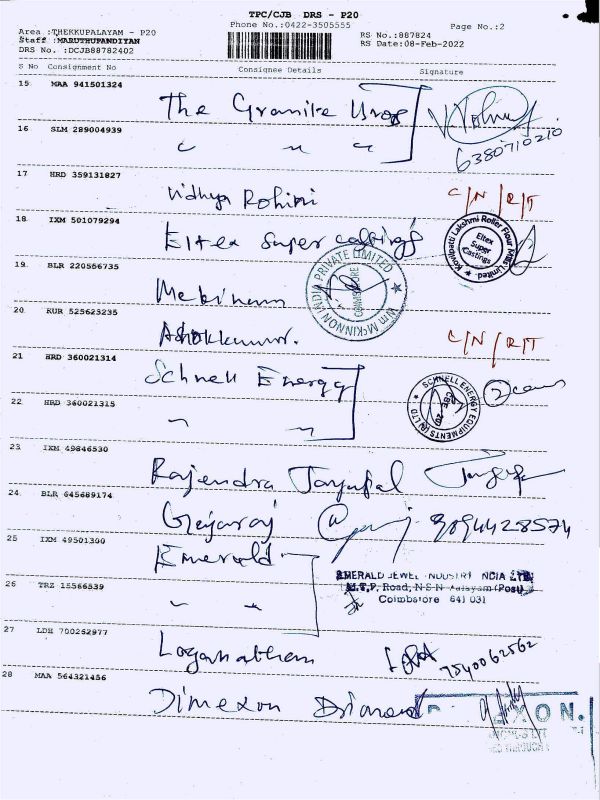 TPC/CJB DRS - P20
Area :THEKKUPALAYAM - P20 Phone No.:0422-3505555 Page No.:2
Staff :MARUTHUPANDIYAN RS No.:887824
DRS No. :DCJB88782402 RS Date:08-Feb-2022
S No Consignment No Consignee Details Signature
15 MAA 941501324 The Granite
6380710210
16 SLM 289004939 " " "
17 HRD 359131827 Vidhya Rohini C/N/R/T
18 IXM 501079294 Eltex Super Castings
Kovilpatti Lakshmi Roller Flour Mills Limited
Eltex Super Castings
19 BLR 220566735
Wm MCKINNON INDIA PRIVATE LIMITED
COIMBATORE
20 KUR 525623235 Ashokkumar. C/N/R/T
21 HRD 360021314 Schnell Energy
SCHNELL ENERGY EQUIPMENTS (P) LTD
22 HRD 360021315 " "
23 IXM 49846530 Rajendra Jayapal
24 BLR 645689174 Gejaraj 9094428574
25 IXM 49501300 Emerald
EMERALD JEWEL INDUSTRY INDIA LTD
M.T.P. Road, N S N Palayam (Post)
Coimbatore 641 031
26 TRZ 15566539 " "
27 LDH 700262977 Loganathan 7540062562
28 MAA 564321456 Dimexon Diamond